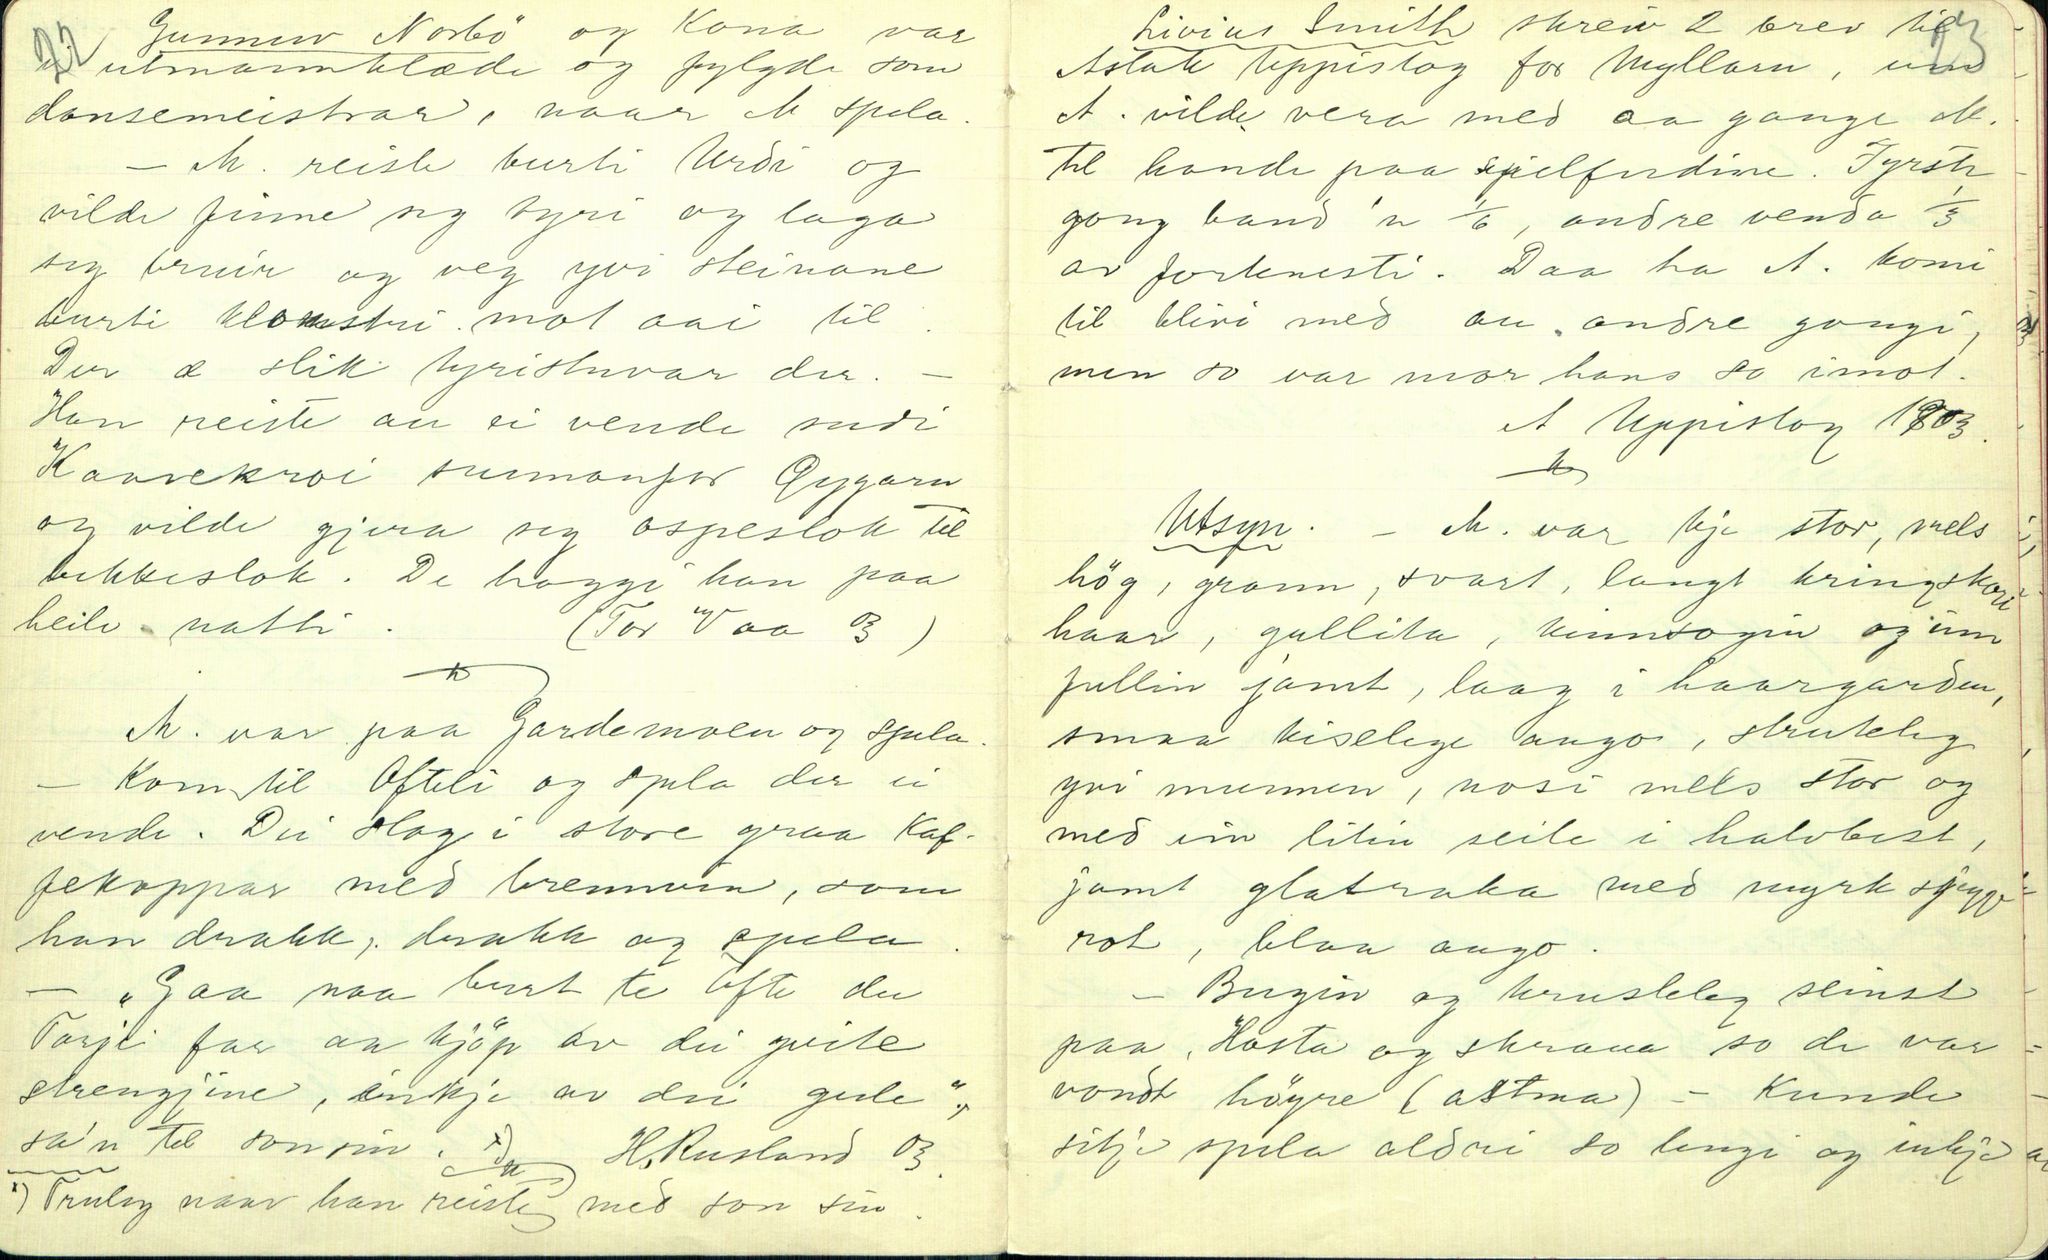 22
Gunnuv Norbö og Kona var
i utmannklæde og fylgde som
dansemeistrar, naar M spela.
— M. reiste burti Urdi og
vilde finne seg tyri og laga
seg bruir og veg yvi steinane
burti klomstri mot aai til.
Der æ slik tyristuvar der. —
Han reiste au ei vende sudi
Kaavekroi sunnanfor Gygarn
og vilde gjera seg ospeslok til
bekkeslok. De hoggi han paa
heile natti. (Tor Vaa 03)
M. var paa Gardemoen og spela.
— Kom til Ofteli og spela der ei
vende. Dei slog i store graa Kaf-
fekoppar med brennvin, som
han drakk, drakk og spela.
— "Gaa naa burt te Ofte du
Torjei far aa kjöp av dei qvite
strengjine, inkje av dei gule",
sa'n til son sin. x) H. Rusland 03.
x) Truleg naar han reiste med son sin.
23
Livius Smith skreiv 2 brev til
Aslak Uppistog for Myllarn, um
A. vilde vera med aa gange M.
til hande paa spelferdine. Fyrste
gong baud 'n 1/6, andre venda 1/3
av fortenesti. Daa ha A. komi
til blivi med au andre gongi,
men so var mor hans so imot.
A Uppistog 1903.
Utsyn. — M. var kje stor, mels
hög, grann, svart, langt kringskori
haar, gullita, kinnsogin og inn
fullin jamt, laag i haargarden,
smaa kiselege augo, struteleg
yvi munnen, nosi mels stor og
med ein litin seile i halvbest,
jamt glatraka med myrk skjegg-
rot, blaa augo.
— Bugin og krusleleg seinst
paa. Hosta og skraua so de var
vondt höyre (astma) — Kunde
sitje spela aldri so lengi og inkje